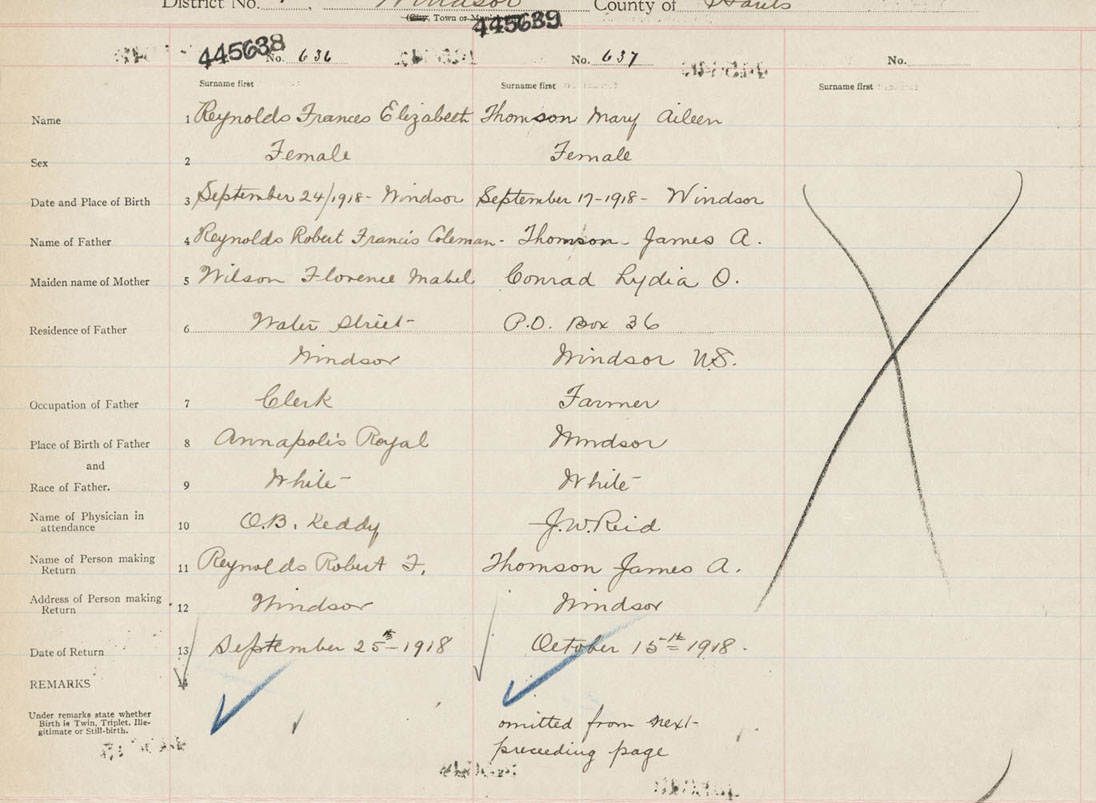 District No. Windsor County of Hants
(City, Town or
445638 445639
No. 636 No. 637 No.
Surname first Surname first Surname first
Name 1 Reynolds Frances Elizabeth Thomson Mary Aileen
Sex 2 Female Female
Date and Place of Birth 3 September 24/1918 - Windsor September 17-1918 - Windsor
Name of Father 4 Reynolds Robert Francis Coleman - Thomson - James A.
Maiden name of Mother 5 Wilson Florence Mabel Conrad Lydia O.
Residence of Father 6 Water Street P.O. Box 36
Windsor Windsor N.S.
Occupation of Father 7 Clerk Farmer
Place of Birth of Father 8 Annapolis Royal Windsor
and
Race of Father. 9 White White
Name of Physician in attendance 10 O.B. Keddy J.W. Reid
Name of Person making Return 11 Reynolds Robert F. Thomson James A.
Address of Person making Return 12 Windsor Windsor
Date of Return 13 September 25th 1918 October 15th 1918.
REMARKS 14
Under remarks state whether
Birth is Twin, Triplet, Ille-
gitimate or Still-birth.
omitted from next
preceeding page